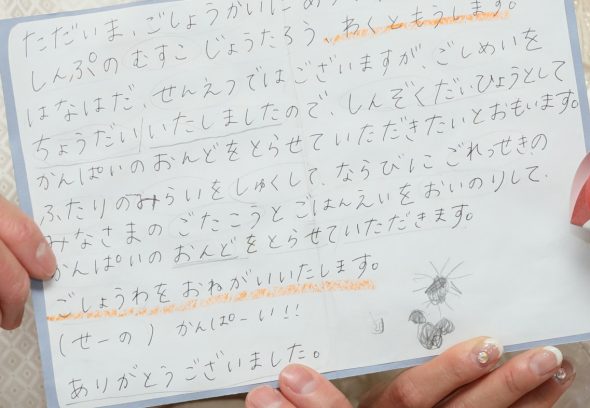 ただいま、ごしょうかいにあ
しんぷのむすこじょうたろう、わくともうします。
はなはだ、せんえつではございますが、ごしめいを
ちょうだいいたしましたので、しんぞくだいひょうとして
かんぱいのおんどをとらせていただきたいとおもいます。
ふたりのみらいをしゅくして、ならびにごれっせきの
みなさまのごたこうとごはんえいをおいのりして、
かんぱいのおんどをとらせていただきます。
ごしょうわをおねがいいたします。
(せーの) かんぱーい!!
ありがとうございました。